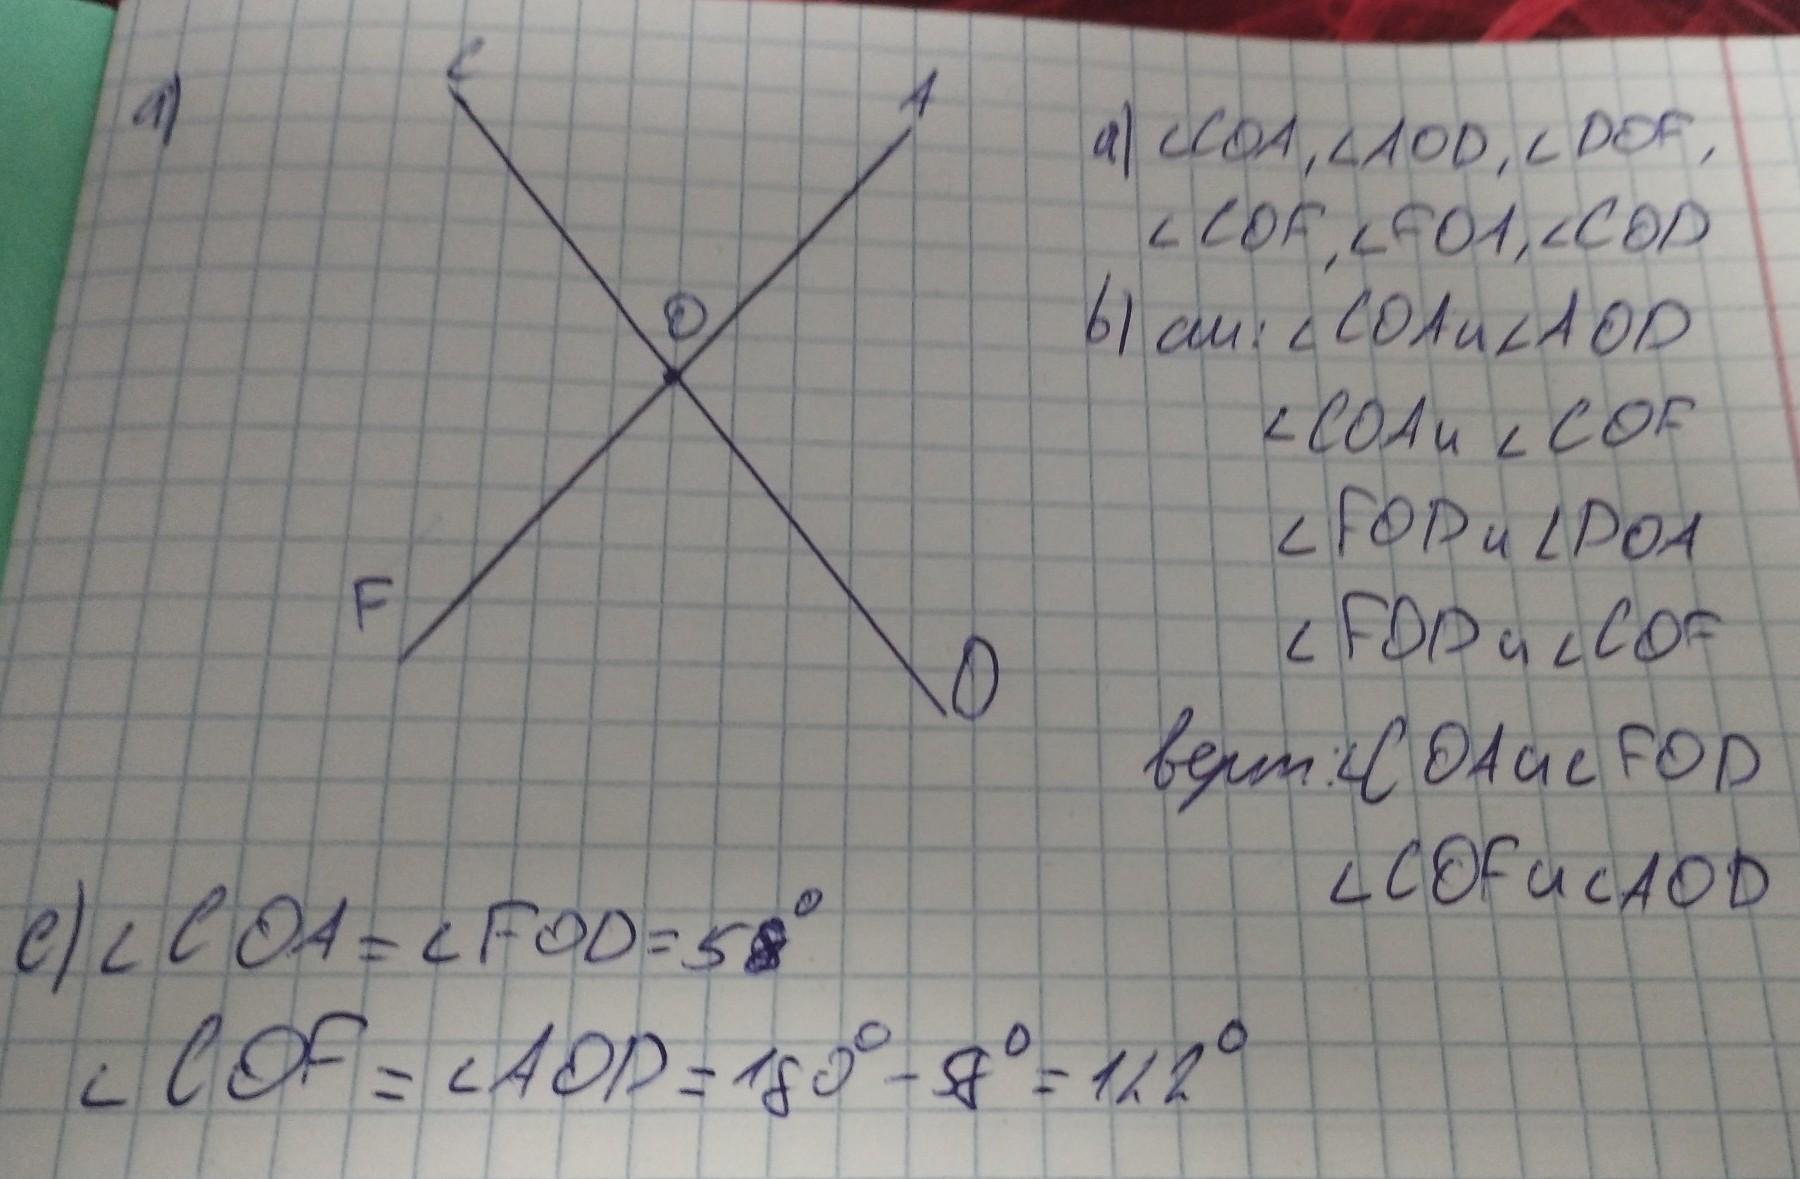 a)
C
A
O
F
D
a) ∠COA, ∠AOD, ∠DOF,
∠COF, ∠FOA, ∠COD
b) см: ∠COA и ∠AOD
∠COA и ∠COF
∠FOD и ∠DOA
∠FOD и ∠COF
верт: ∠COA и ∠FOD
∠COF и ∠AOD
c) ∠COA = ∠FOD = 58°
∠COF = ∠AOD = 180° - 58° = 122°